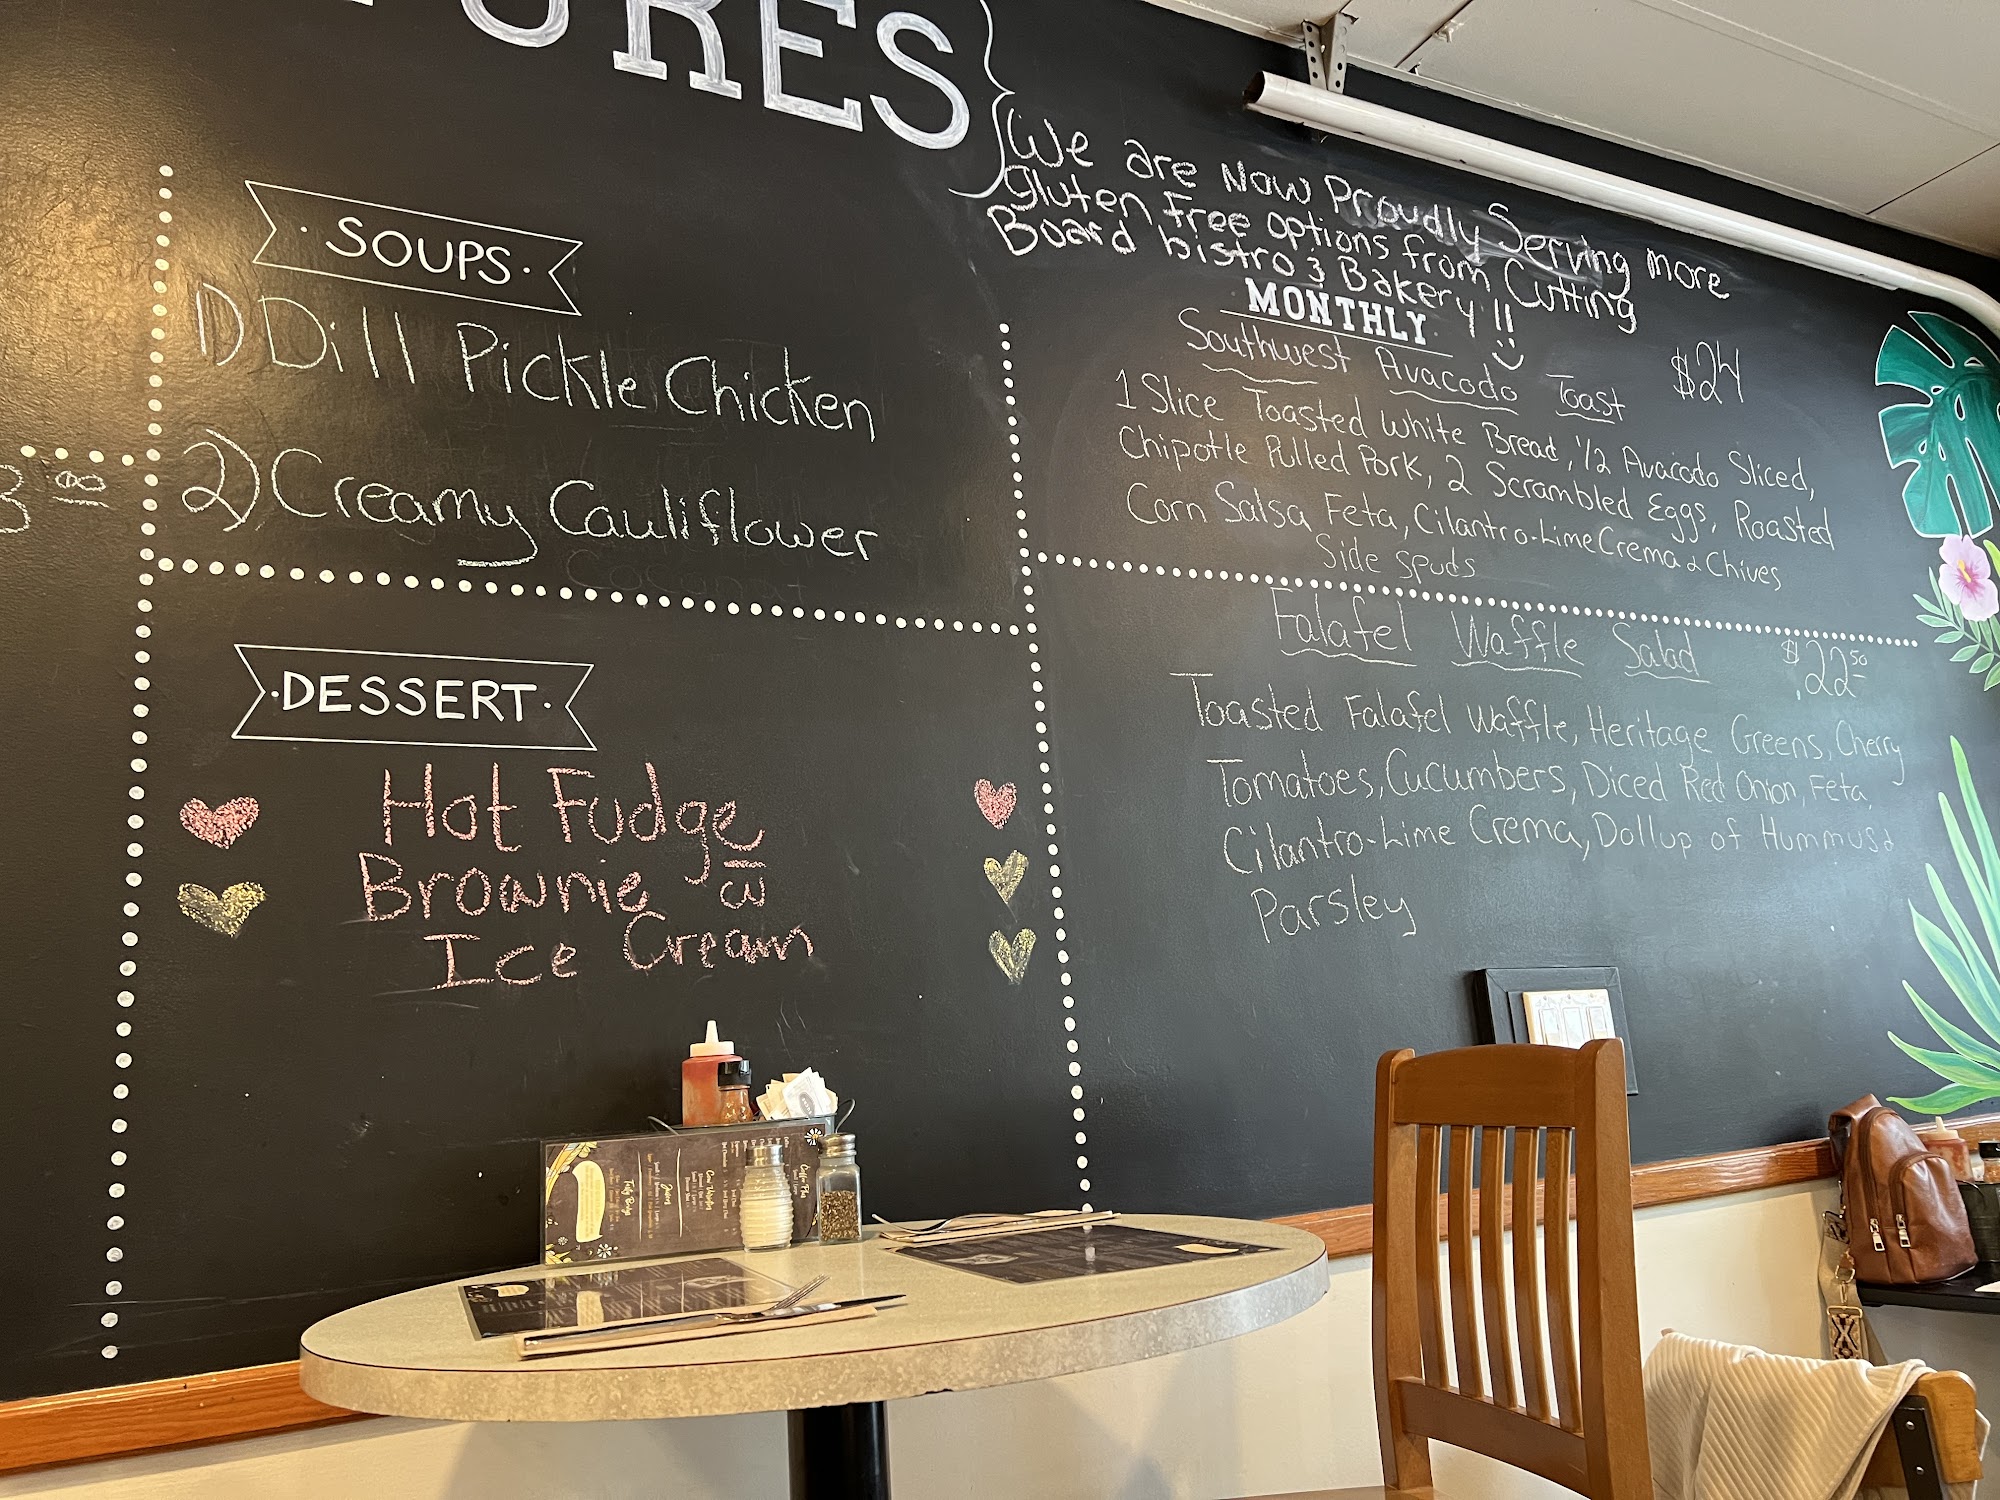 · SOUPS ·
1) Dill Pickle Chicken
2) Creamy Cauliflower
· DESSERT ·
Hot Fudge
Brownie w
Ice Cream
We are Now Proudly Serving more
gluten free options from Cutting
Board bistro & Bakery!!
MONTHLY
Southwest Avacodo Toast $24
1 Slice Toasted White Bread, 1/2 Avacodo Sliced,
Chipotle Pulled Pork, 2 Scrambled Eggs, Roasted
Corn Salsa Feta, Cilantro-Lime Crema & Chives
Side spuds
Falafel Waffle Salad $22.50
Toasted Falafel Waffle, Heritage Greens, Cherry
Tomatoes, Cucumbers, Diced Red Onion, Feta,
Cilantro-Lime Crema, Dollup of Hummus &
Parsley